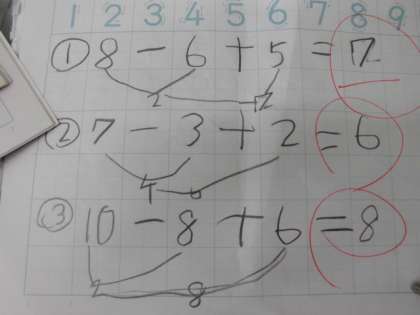 1 2 3 4 5 6 7 8 9
① 8 - 6 + 5 = 7
2
② 7 - 3 + 2 = 6
4
③ 10 - 8 + 6 = 8
2
8